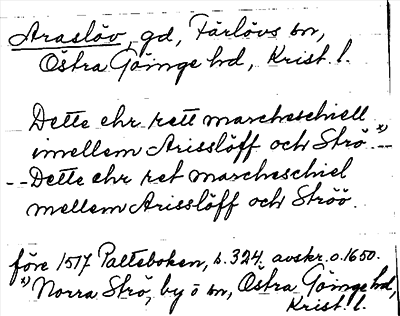 Araslöv, gd, Färlövs sn,
Östra Göinge hd, Krist. l.
Dette ehr rett marcheschiell
imellem Arisslöff och Strö x)--
--Dette ehr ret marcheschiel
mellem Arisslöff och Ströö.
före 1517 Palteboken, s. 324. avskr. o. 1650.
x) Norra Strö, by ö sn, Östra Göinge hd,
Krist. l.